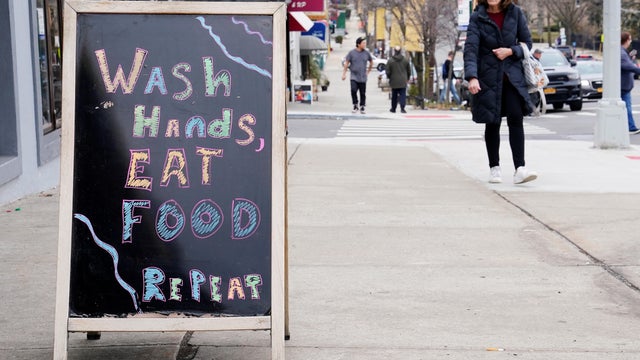 WaSh
Hands,
EAT
FOOD
REPEAT